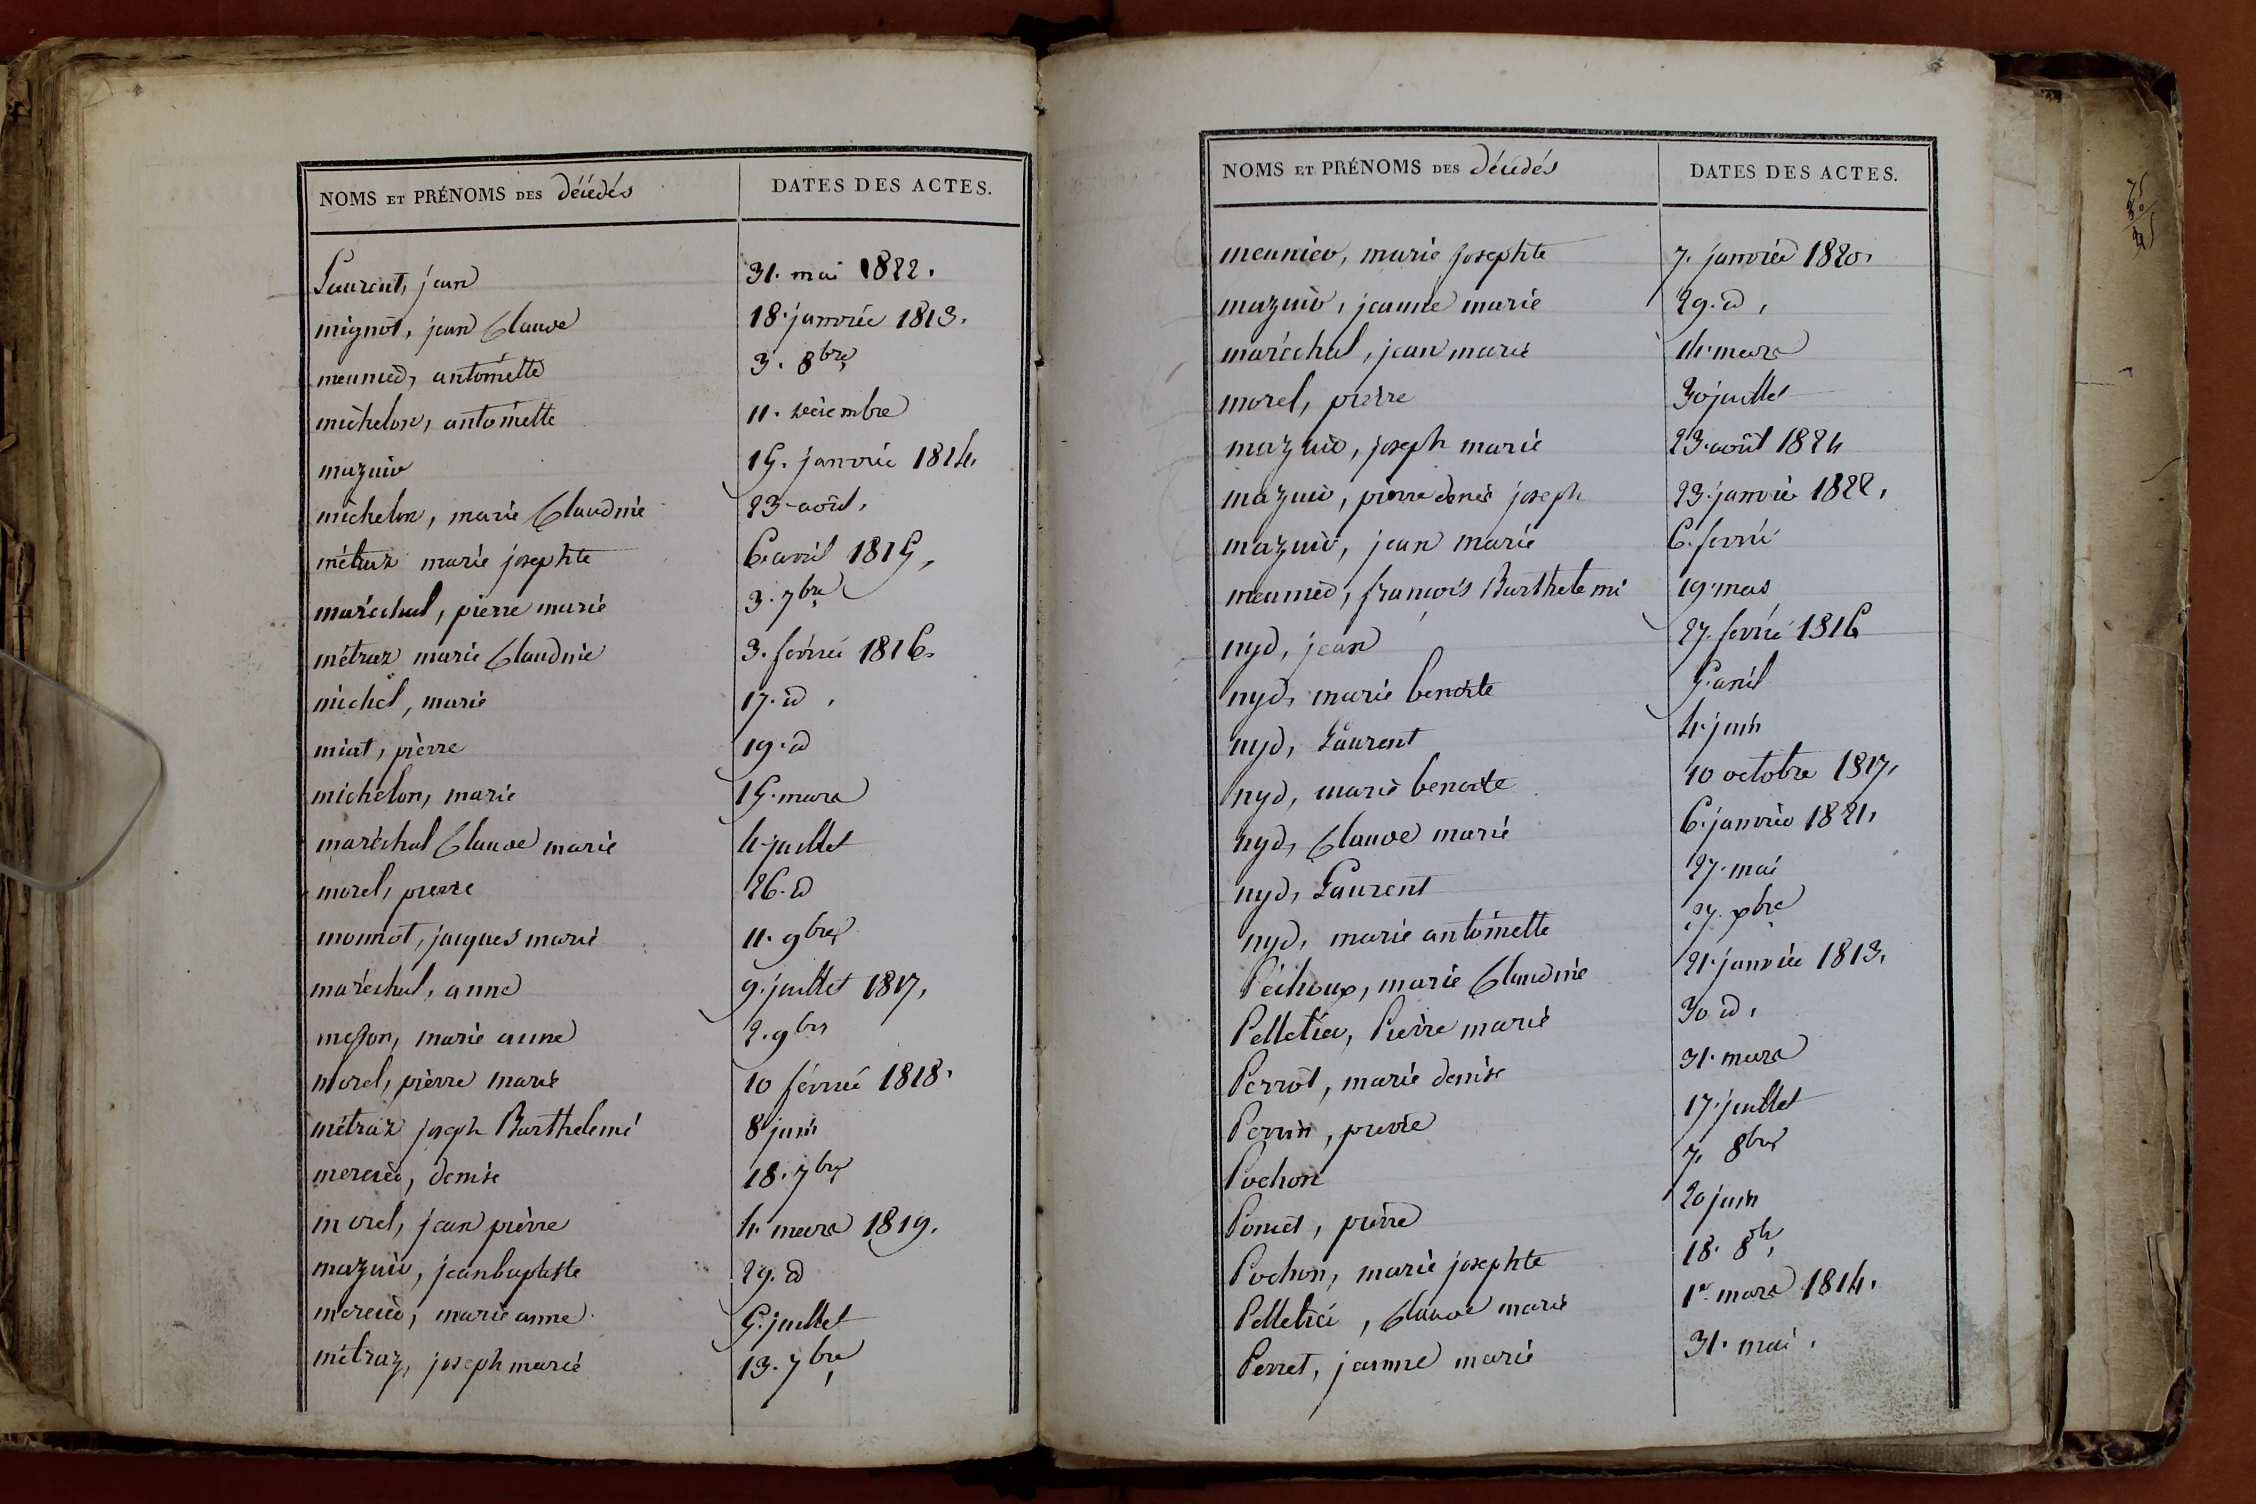 NOMS ET PRÉNOMS DES décédés	DATES DES ACTES.
Laurent, jean	31. mai 1822.
mignot, jean Claude	18. janvier 1813.
meunier, antoinette	3. 8bre
michelon, antoinette	11. décembre
mazuir	15. janvier 1814.
michelon, marie Claudine	23. août,
métraz marie josephte	6. avril 1815,
maréchal, pierre marie	3. 7bre
métraz marie Claudine	3. février 1816.
michel, marie	17. d,
miat, pierre	19. d
michelon, marie	15. mars
maréchal Claude marie	4. juillet
morel, pierre	26. d
monnot, jacques marie	11. 9bre
maréchal, anne	9. juillet 1817,
marie anne	2. 9bre
morel, pierre marie	10 février 1818.
métraz joseph Barthelemi	8 juin
mercier, denise	18. 7bre
morel, jean pierre	4. mars 1819.
mazuir, jean baptiste	29. d
mercier, marie anne	5. juillet
métraz, joseph marie	13. 7bre
NOMS ET PRÉNOMS DES décédés	DATES DES ACTES.
meunier, marie josephte	7. janvier 1820.
mazuir, jeanne marie	29. d,
maréchal, jean marie	14. mars
morel, pierre	30 juillet
mazuir, joseph marie	23. août 1821
mazuir, pierre denis joseph	23. janvier 1822,
mazuir, jean marie	6. fevrier
meunier, françois Barthelemi	19. mars
nyd, jean	27. fevrier 1816
nyd, marie benoite	5. avril
nyd, Laurent	4. juin
nyd, marie benoite	10 octobre 1817,
nyd, Claude marie	6. janvier 1821,
nyd, Laurent	27. mai
nyd, marie antoinette	27. xbre
Péchoux, marie Claudine	21. janvier 1813,
Pelletier, Pierre marie	30 d,
Perrot, marie denise	31. mars
Perrin, pierre	17. juillet
Pochon	7. 8bre
pierre	20 juin
Pochon, marie josephte	18. 8bre
Pelletier, Claude marie	1er mars 1814.
Perret, jeanne marie	31. mai.